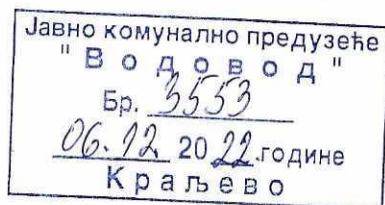 Јавно комунално предузеће
"Водовод"
Бр. 3553
06.12 2022.године
Краљево